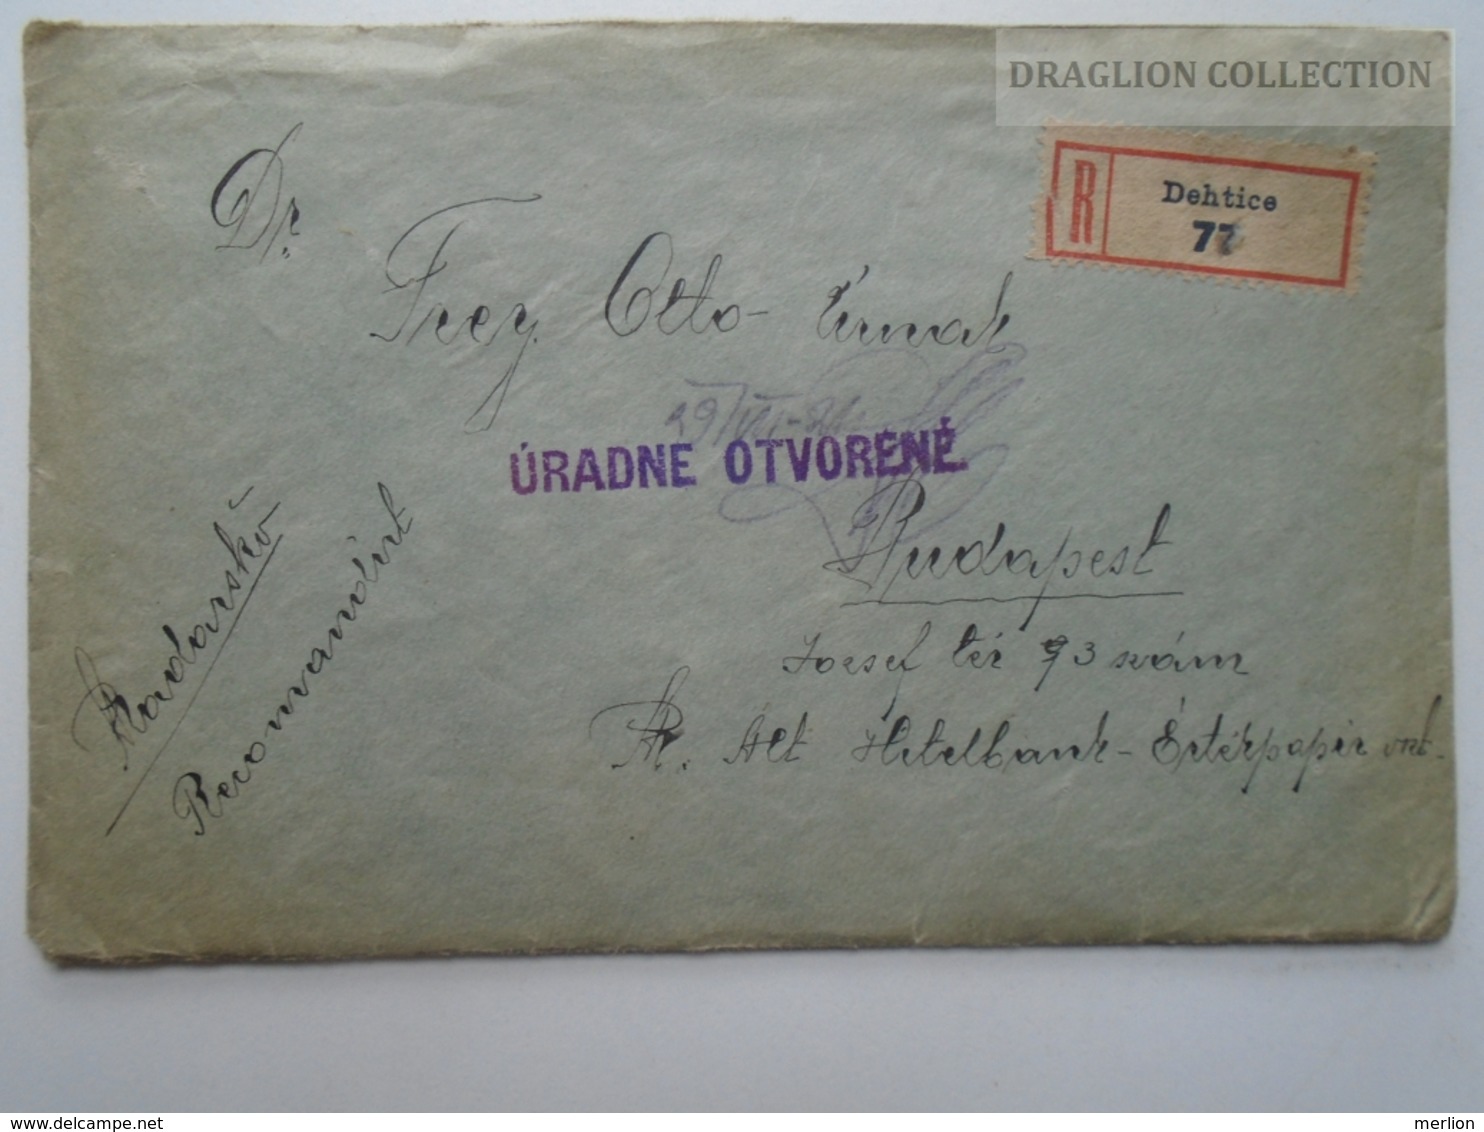 DRAGLION COLLECTION
R
Dehtice
77
Dr.
Frey Otto - Úrnak
29/VII-21
ÚRADNE OTVORENÉ.
Budapest
Jozsef tér 93 szám
M. Ált Hitelbank - Értékpapir oszt.
Madarskó
Recomandirt
delcampe.net
merlion